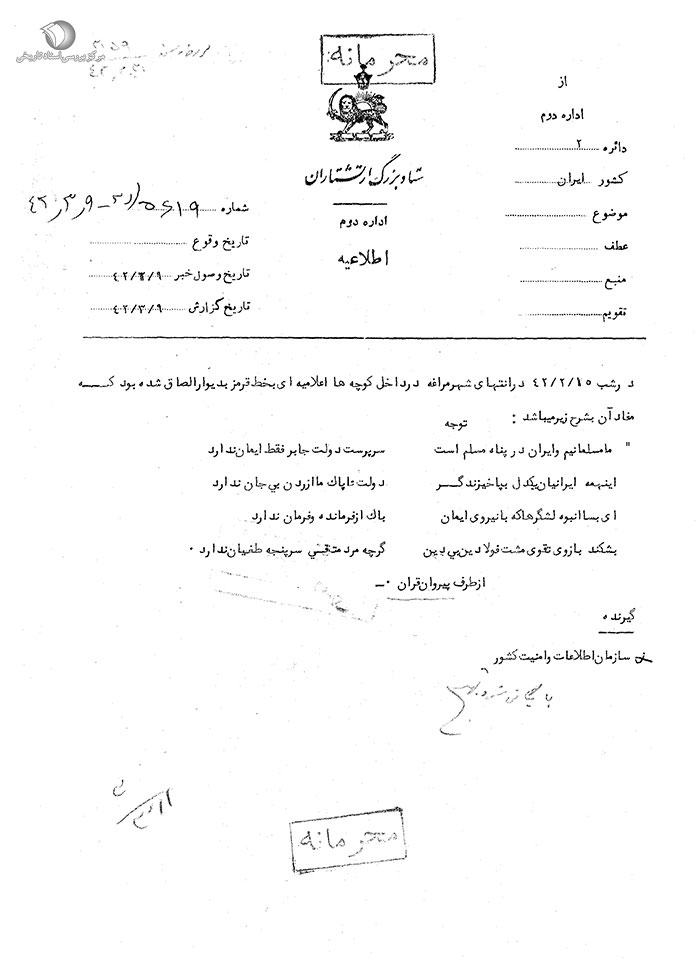 مرکز بررسی اسناد تاریخی
محرمانه
از
اداره دوم
دائره ۲
کشور ایران
موضوع
عطف
منبع
تقویم
ستاد بزرگ ارتشتاران
اداره دوم
اطلاعیه
شماره
تاریخ وقوع
تاریخ وصول خبر ۴۲/۳/۹
تاریخ گزارش ۴۲/۳/۹
در شب ۴۲/۲/۱۵ در انتهای شهر مراغه در داخل کوچه ها اعلامیه ای بخط قرمز بدیوار الصاق شده بود که
مفاد آن بشرح زیر میباشد :
توجه
" ما مسلمانیم و ایران در پناه مسلم است سرپرست دولت جابر فقط ایمان ندارد
اینهمه ایرانیان یکدل بپاخیزند گر دولت ناپاك ما ازردن بی جان ندارد
ای بسا انبوه لشگرها که با نیروی ایمان باك از فرمانده و فرمان ندارد
بشکند بازوی تقوی مشت فولادین بی دین گرچه مرد متقی سرپنجه طغیان ندارد .
از طرف پیروان قران .ــ
گیرنده
سازمان اطلاعات و امنیت کشور
محرمانه